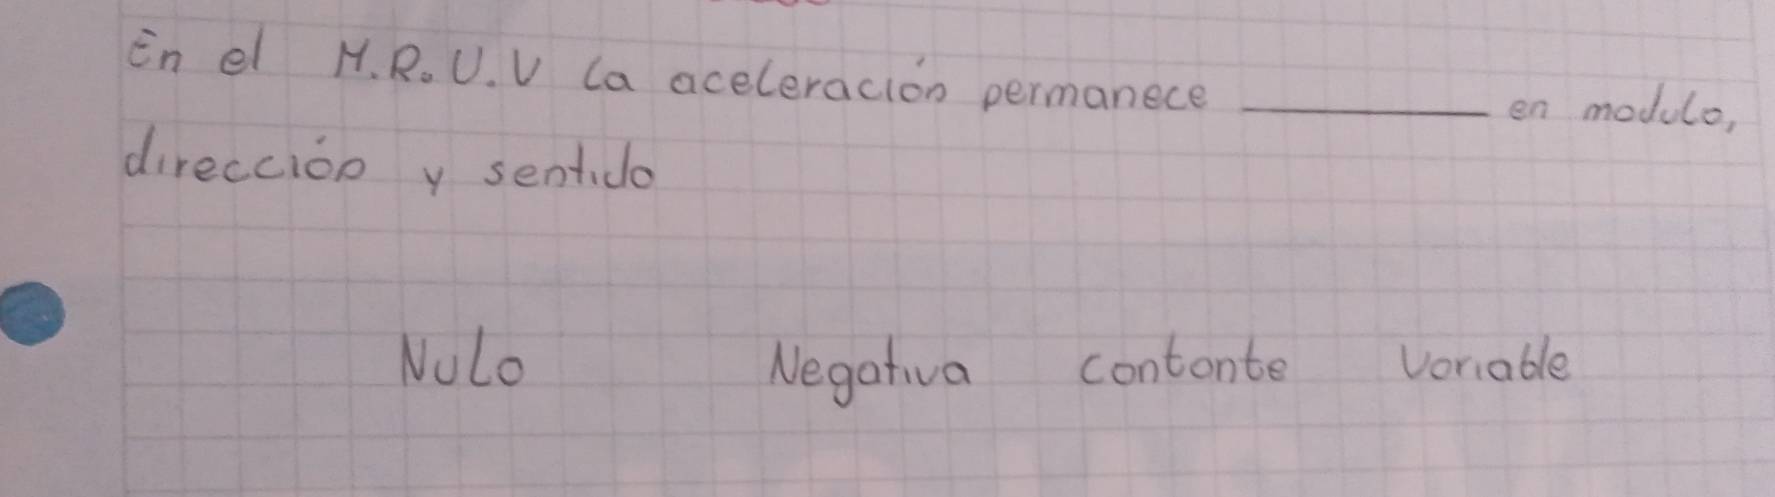 En el M.R.U.V la aceleración permanece ________ en modulo,
dirección y sentido
Nulo Negativa contante variable